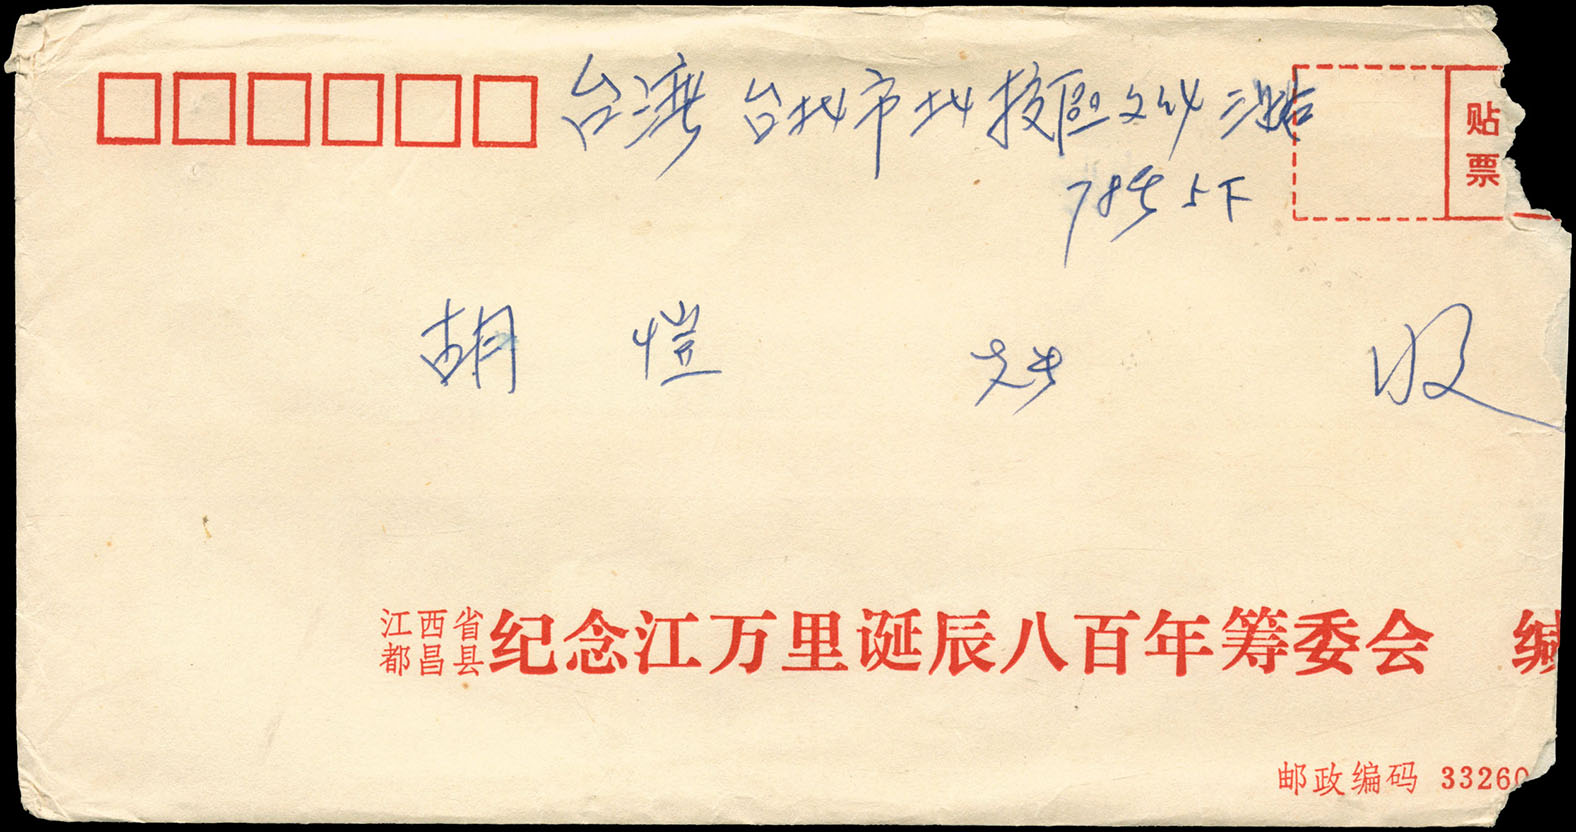 台湾 台北市北投區文化三路
78号5下
贴
票
胡 愷 先生 收
江西省
都昌县
纪念江万里诞辰八百年筹委会 缄
邮政编码 33260